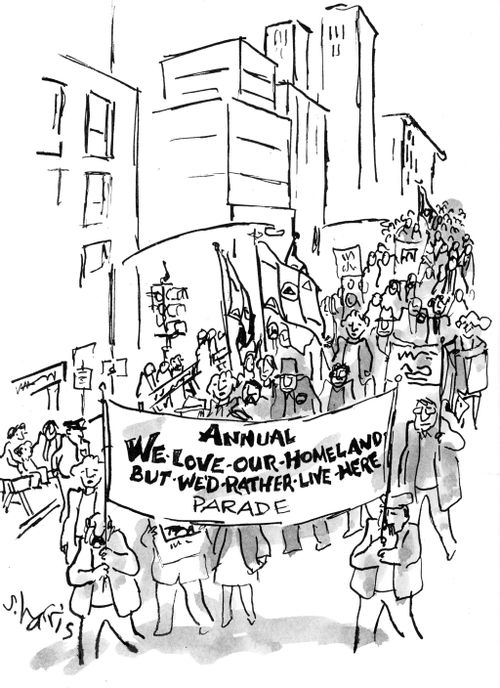 ANNUAL
WE-LOVE-OUR-HOMELAND
BUT-WE'D-RATHER-LIVE-HERE
PARADE
S. harris